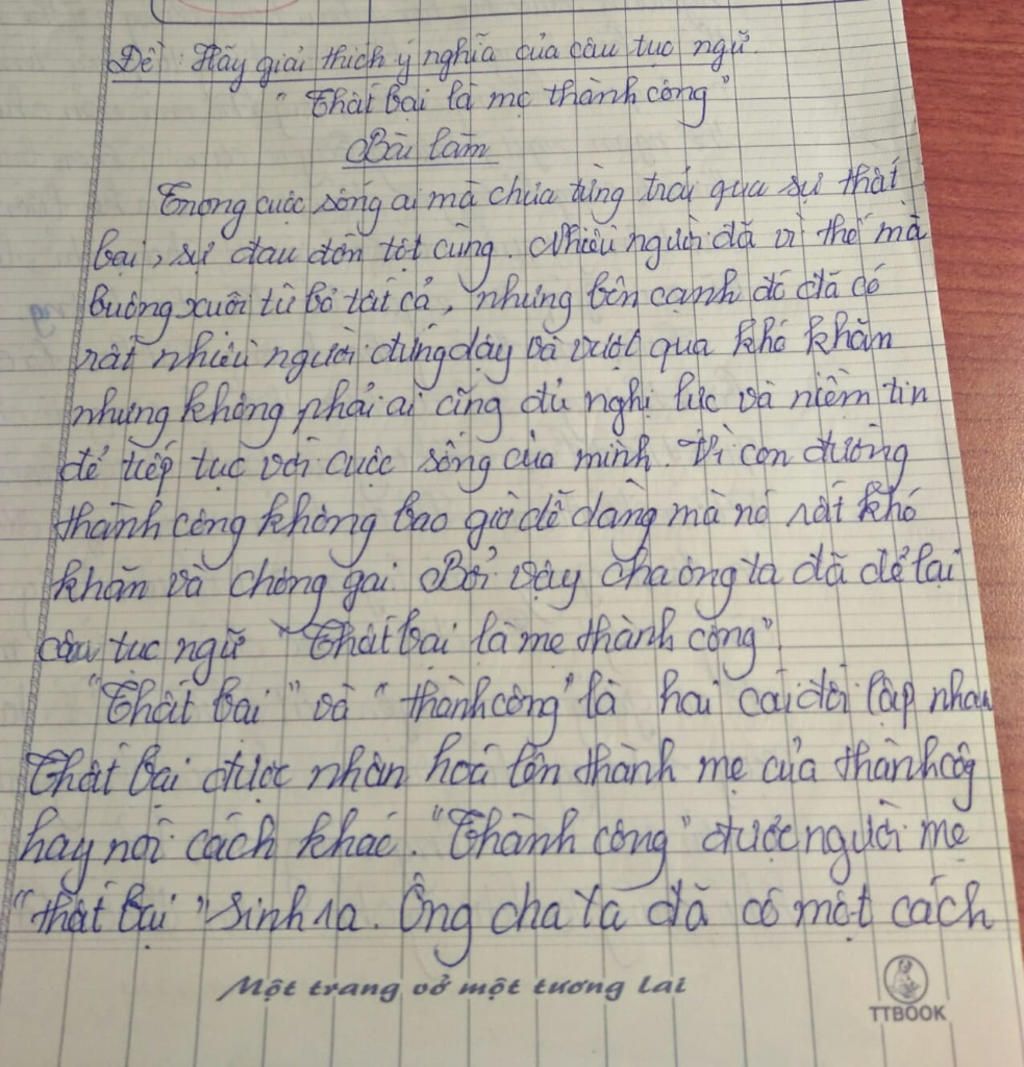 Đề: Hãy giải thích ý nghĩa của câu tục ngữ.
"Thất bại là mẹ thành công"
Bài làm
Trong cuộc sống ai mà chưa từng trải qua sự thất
bại, sự đau đớn tột cùng. Nhiều người đã vì thế mà
buông xuôi từ bỏ tất cả, nhưng bên cạnh đó đã có
rất nhiều người đứng dậy và vượt qua khó khăn
nhưng không phải ai cũng đủ nghị lực và niềm tin
để tiếp tục với cuộc sống của mình. Vì con đường
thành công không bao giờ dễ dàng mà nó rất khó
khăn và chông gai. Bởi vậy cha ông ta đã để lại
câu tục ngữ "Thất bại là mẹ thành công".
"Thất bại" và "thành công" là hai cái đối lập nhau
Thất bại được nhân hoá lên thành mẹ của thành côg
hay nói cách khác. "Thành công" được người mẹ
"thất bại" sinh ra. Ông cha ta đã có một cách
Một trang vở một tương lai
TTBOOK